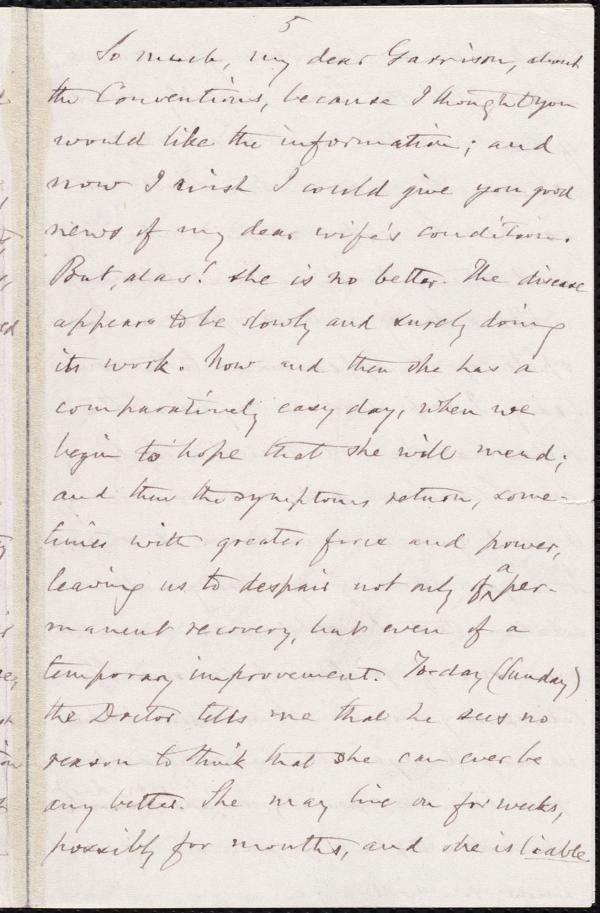 5
So much, my dear Garrison, about
the Conventions, because I thought you
would like the information; and
now I wish I could give you good
news of my dear wife's condition.
But, alas! she is no better. The disease
appears to be slowly and surely doing
its work. Now and then she has a
comparatively easy day, when we
begin to hope that she will mend;
and then the symptoms return, some-
times with greater force and power,
leaving us to despair not only of a per-
manent recovery, but even of a
temporary improvement. To-day (Sunday)
the Doctor tells me that he sees no
reason to think that she can ever be
any better. She may live on for weeks,
possibly for months, and she is liable